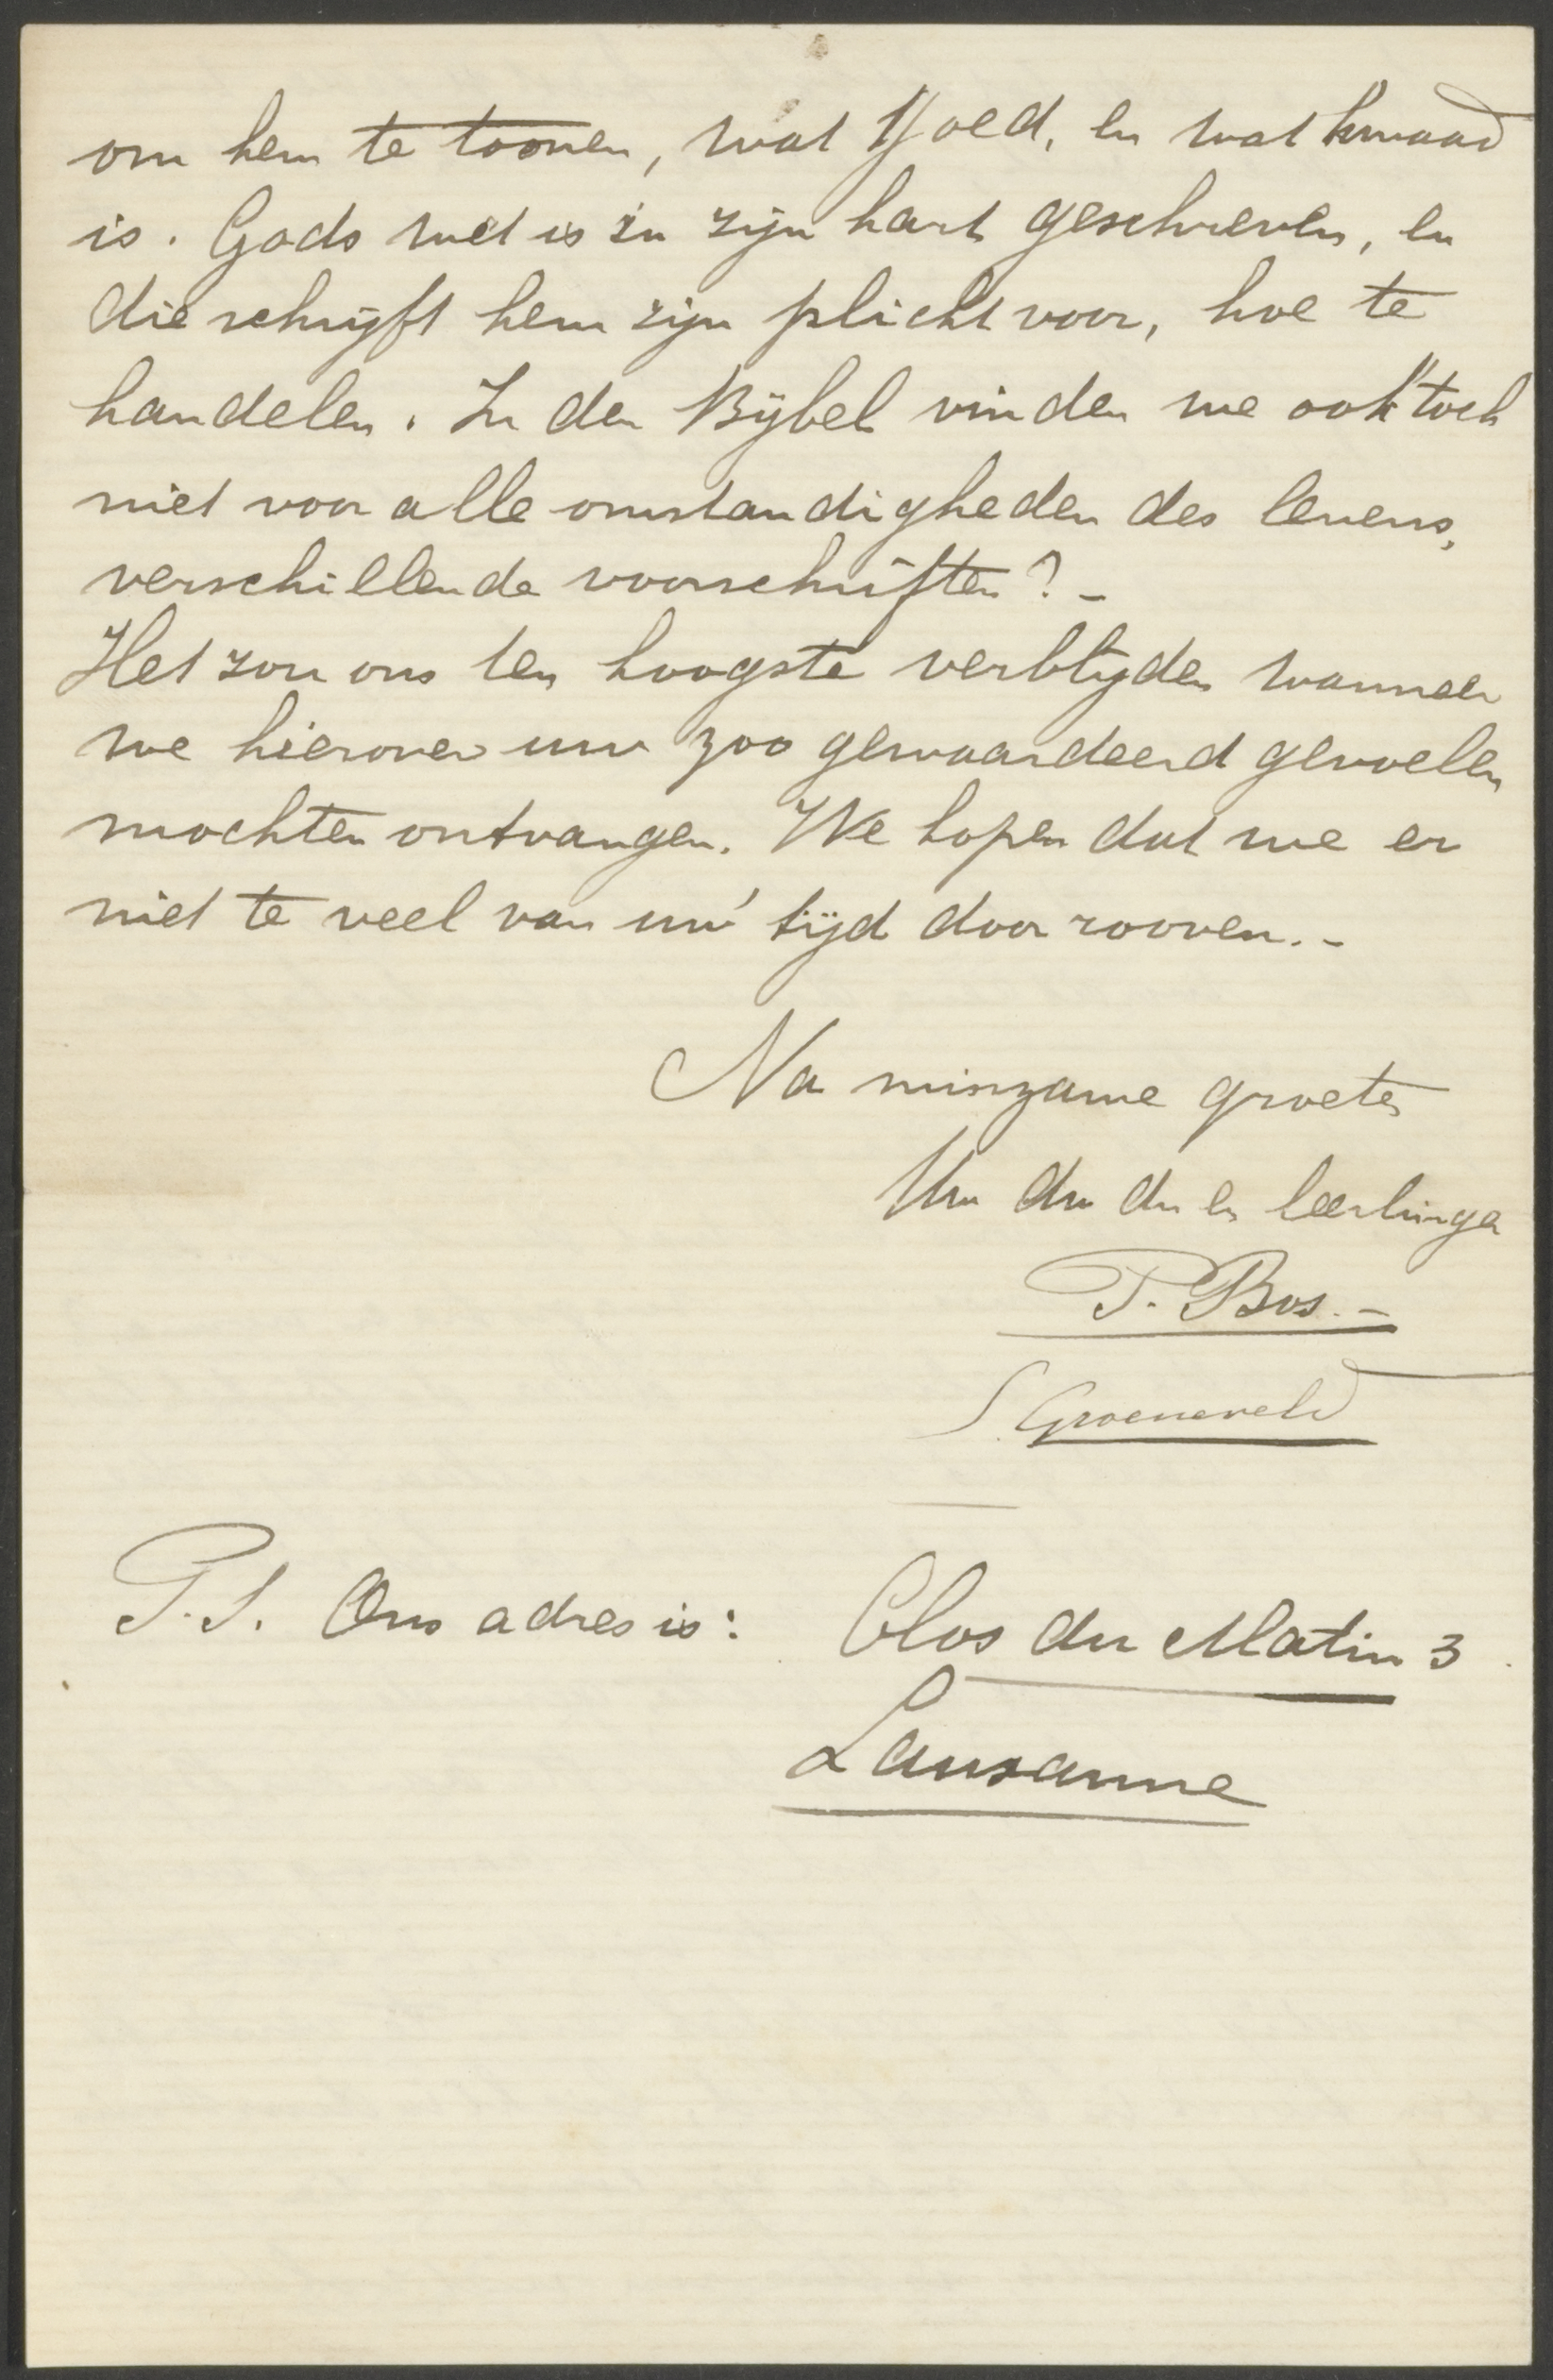 om hem te toonen, wat goed, en wat kwaad
is. Gods wet is in zijn hart geschreven, en
die schrijft hem zijn plicht voor, hoe te
handelen. In den Bijbel vinden we ook toch
niet voor alle omstandigheden des levens,
verschillende voorschriften? -
Het zou ons ten hoogste verblijden wanneer
we hierover uw zoo gewaardeerd gevoelen
mochten ontvangen. We hopen dat we er
niet te veel van uw tijd door rooven. -
Na minzame groeten
Uw dw du en leerlingen
P. Bos. -
S. Groeneveld
P.S. Ons adres is: Clos du Matin 3
Lausanne